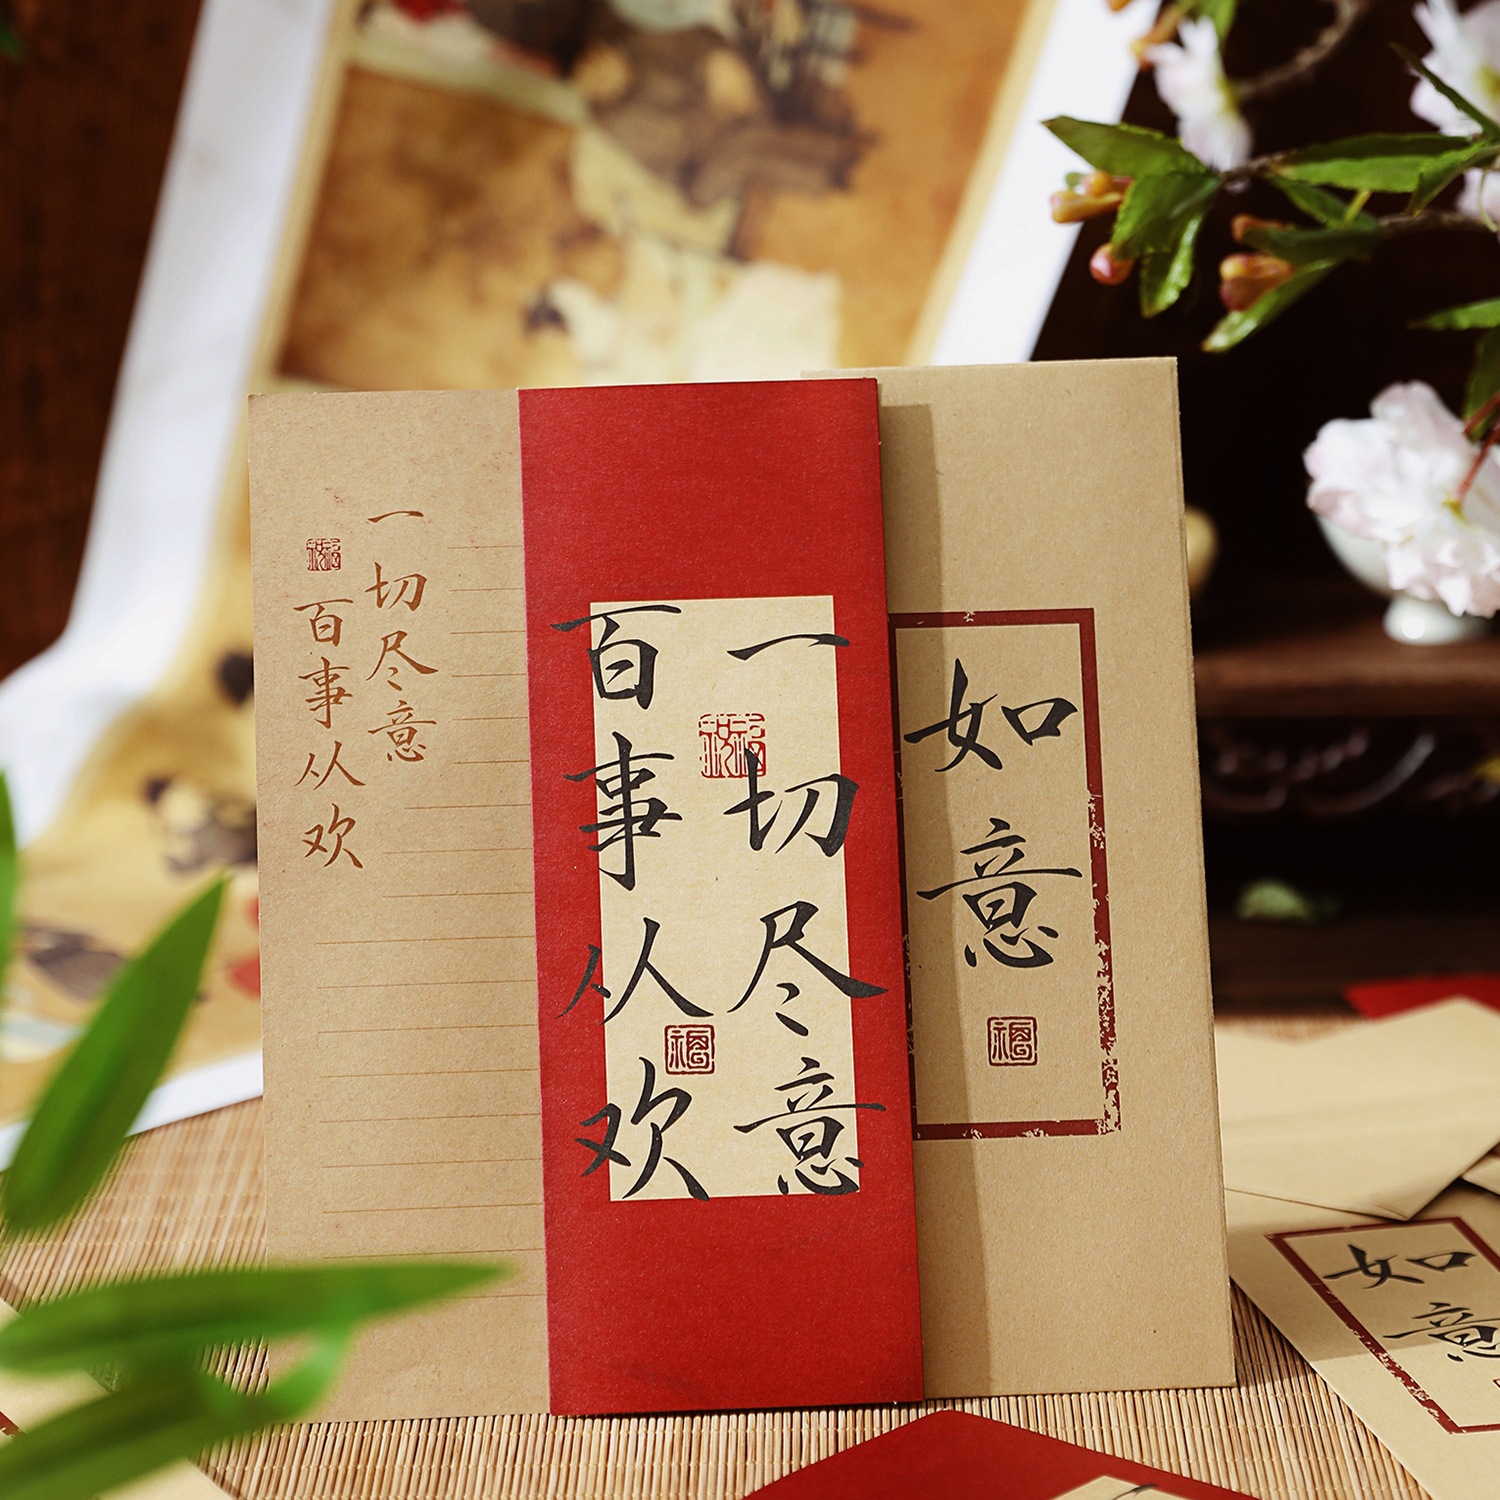 一切尽意
百事从欢
一切尽意
百事从欢
如意
福
如意